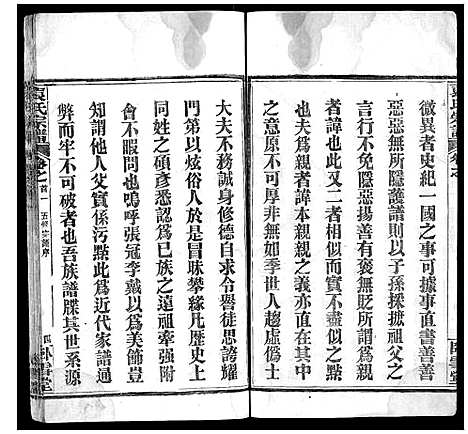 微異者史紀一國之事可據事直書善善
惡惡無所隱護譜則以子孫採摭祖父之
言行不免隱惡揚善有褒無貶所謂為親
者諱也此又二者相似而實不盡似之中
也夫為親者諱本親親之義亦直在其中
之意原不可厚非無如季世人趨虛偽士
大夫不務誠身修德自求令譽徒思誇耀
門第以炫俗人於是冒昧攀緣凡歷史上
同姓之碩彥悉認為已族之遠祖牽強附
會不暇問也嗚呼張冠李戴以為美飾豈
知謂他人父實係污點此為近代家譜通
弊而牢不可破者也吾族譜牒其世系源
袁氏宗譜
卷之首一
五修宗譜序
四
臥雪堂